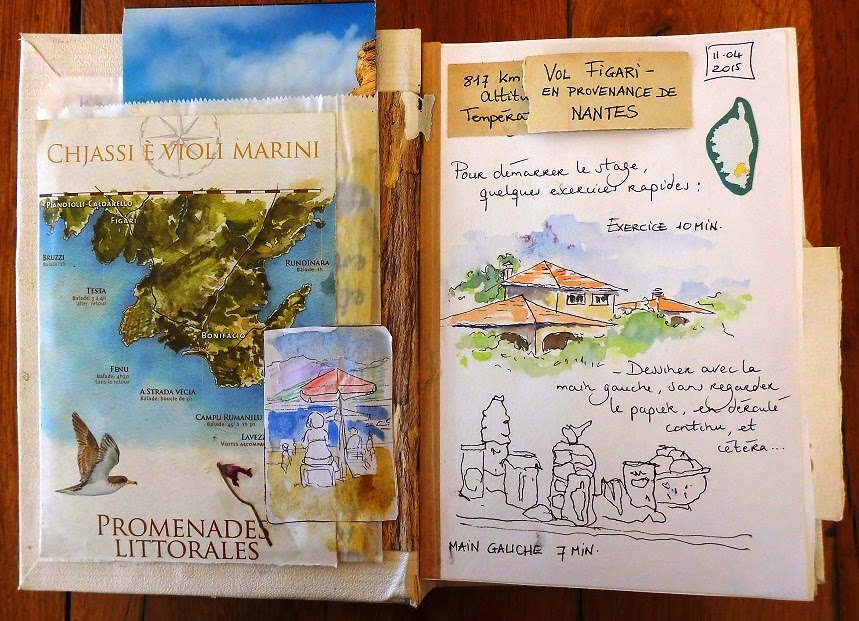 CHJASSI È VIOLI MARINI
PIANOTOLLI-CALDARELLO
FIGARI
BRUZZI
Balade: 2h
RUNDINARA
Balade: 1h
TESTA
Balade: 3 à 4h
aller-retour
BONIFACIO
FENU
Balade: 4h30
sans le retour
A STRADA VECIA
Balade: boucle de 3h
CAMPU RUMANILU
Balade: 45' à 1h30
LAVEZZI
VISITES ACCOMPA
PROMENADES
LITTORALES
817 km
Altitu
Tempéra
VOL FIGARI -
EN PROVENANCE DE
NANTES
11-04
2015
Pour démarrer le stage,
quelques exercices rapides :
EXERCICE 10 MIN.
- Dessiner avec la
main gauche, sans regarder
le papier, en déroulé
continu, et
cétéra...
MAIN GAUCHE 7 MIN.